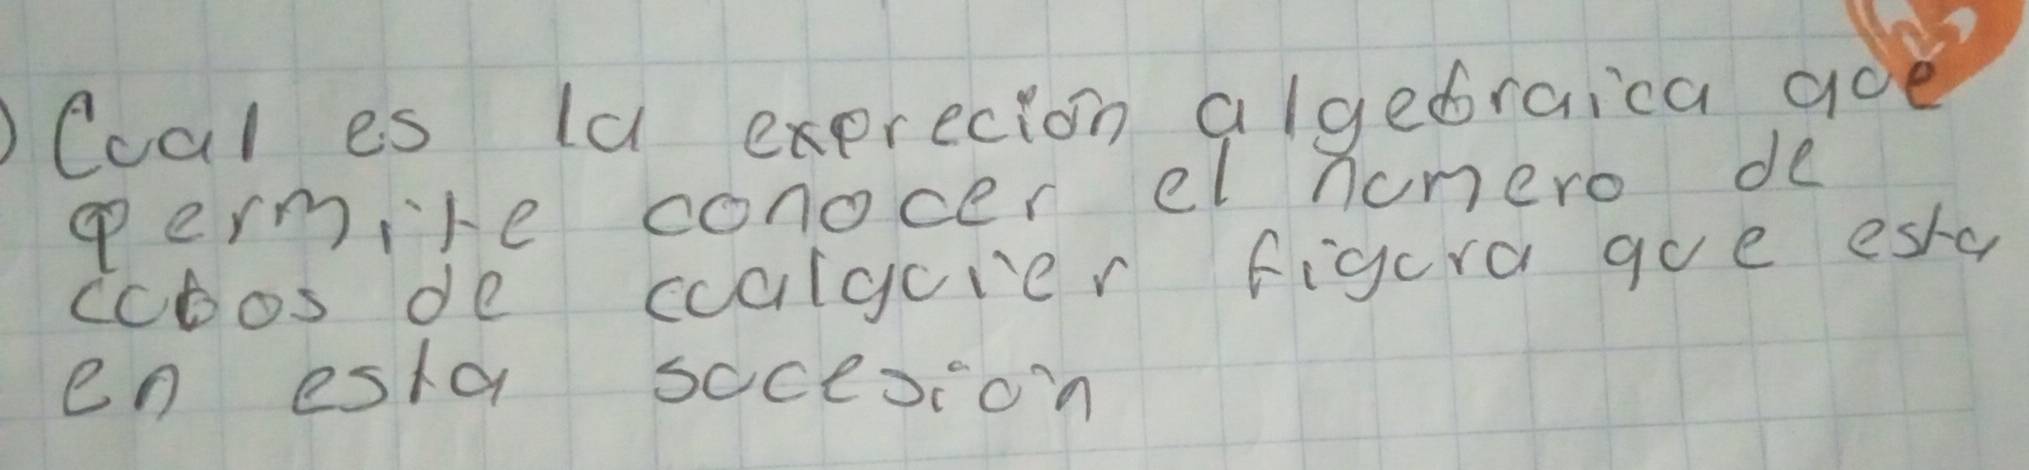 ) Cual es la expreción algebraica que
permite conocer el numero de
cubos de cualquier figura que esta
en esta sucesión